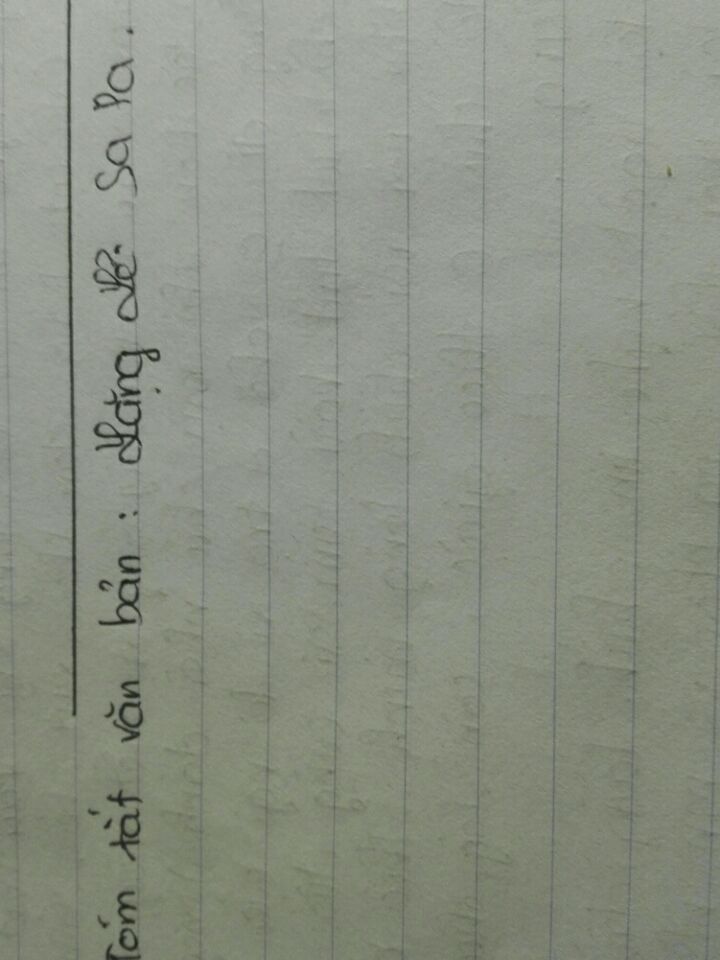 Tóm tắt văn bản: Lặng lẽ Sa Pa.